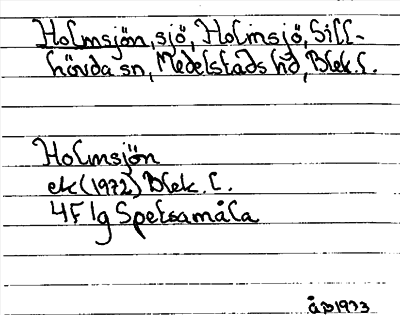 Holmsjön, sjö, Holmsjö, Sill-
hövda sn, Medelstads hd, Blek. l.
Holmsjön
ek (1972) Blek. l.
4F 1g Spetsamåla
åp 1973